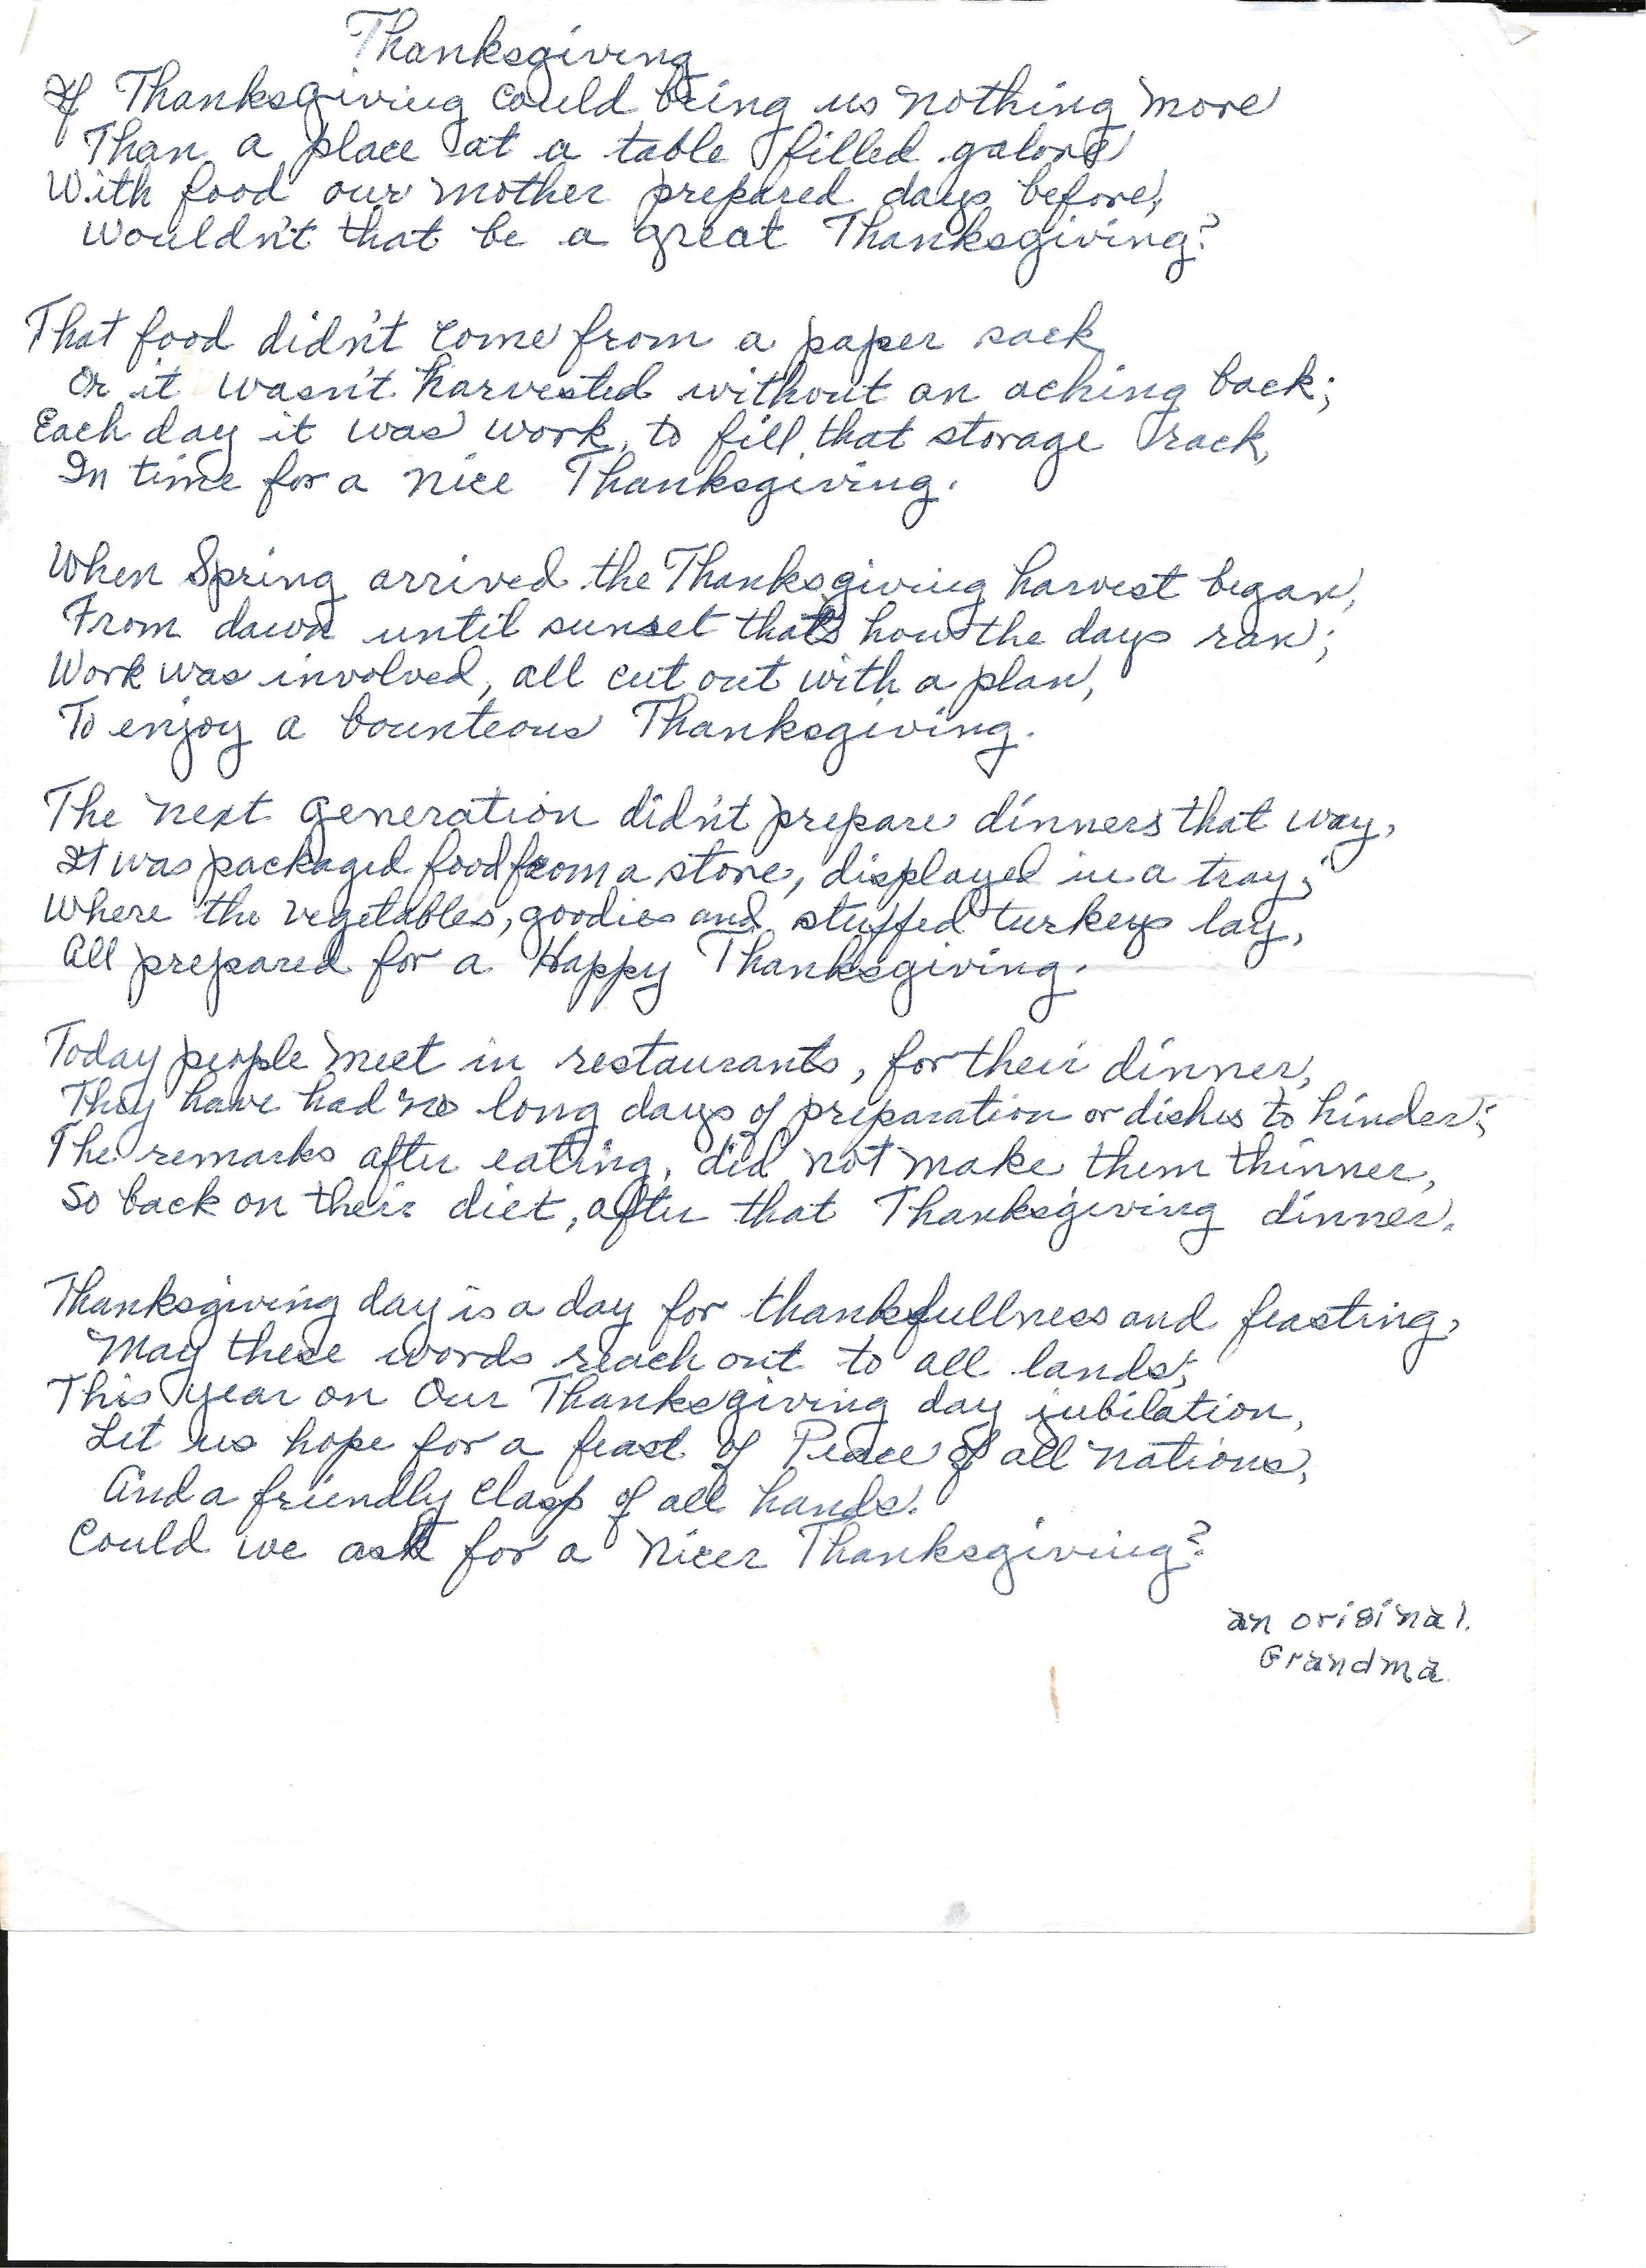 Thanksgiving
If Thanksgiving could bring us nothing more
Than a place at a table filled galore
With food our mother prepared days before;
Wouldn't that be a great Thanksgiving?
That food didn't come from a paper sack
Or it wasn't harvested without an aching back;
Each day it was work, to fill that storage rack,
In time for a nice Thanksgiving.
When Spring arrived the Thanksgiving harvest began,
From dawn until sunset that's how the days ran;
Work was involved, all cut out with a plan,
To enjoy a bounteous Thanksgiving.
The next generation didn't prepare dinners that way,
It was packaged food from a store, displayed in a tray;
Where the vegetables, goodies and stuffed turkeys lay,
All prepared for a Happy Thanksgiving.
Today people meet in restaurants, for their dinner,
They have had no long days of preparation or dishes to hinder;
The remarks after eating, did not make them thinner,
So back on their diet, after that Thanksgiving dinner.
Thanksgiving day is a day for thankfullness and feasting,
May these words reach out to all lands;
This year on Our Thanksgiving day jubilation,
Let us hope for a feast of Peace of all nations,
And a friendly clasp of all hands.
Could we ask for a nicer Thanksgiving?
an original.
Grandma